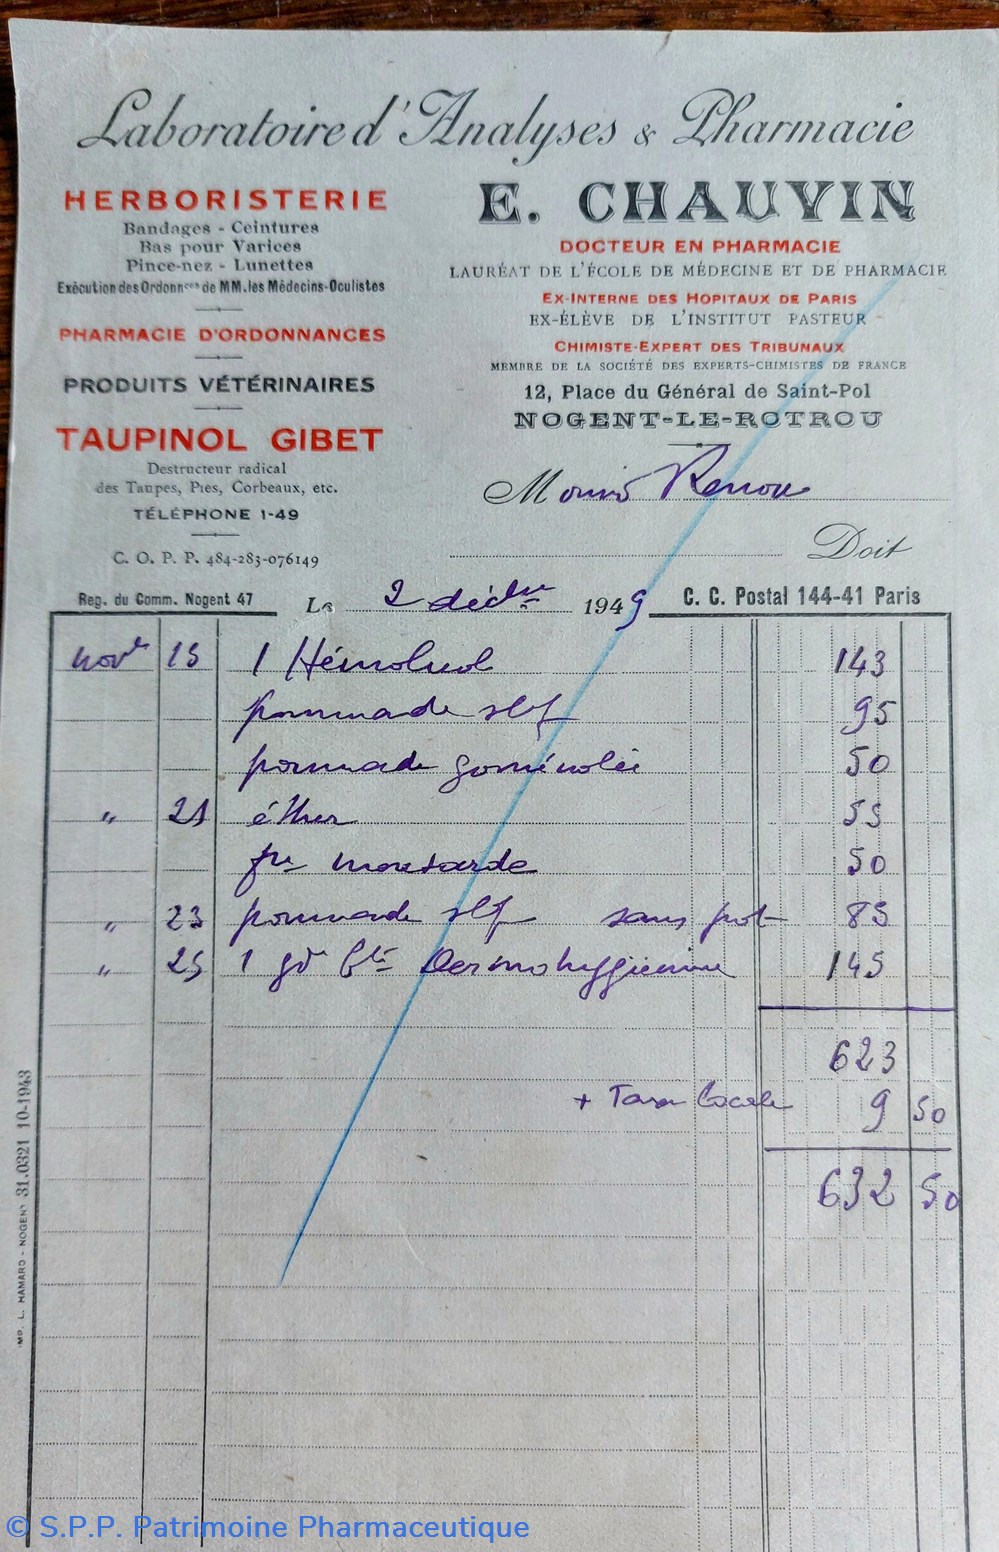 Laboratoire d'Analyses & Pharmacie
HERBORISTERIE
Bandages - Ceintures
Bas pour Varices
Pince-nez - Lunettes
Exécution des Ordonnces de MM. les Médecins-Oculistes
PHARMACIE D'ORDONNANCES
PRODUITS VÉTÉRINAIRES
TAUPINOL GIBET
Destructeur radical
des Taupes, Pies, Corbeaux, etc.
TÉLÉPHONE 1-49
C. O. P. P. 484-283-076149
Reg. du Comm. Nogent 47
E. CHAUVIN
DOCTEUR EN PHARMACIE
LAURÉAT DE L'ÉCOLE DE MÉDECINE ET DE PHARMACIE
EX-INTERNE DES HOPITAUX DE PARIS
EX-ÉLÈVE DE L'INSTITUT PASTEUR
CHIMISTE-EXPERT DES TRIBUNAUX
MEMBRE DE LA SOCIÉTÉ DES EXPERTS-CHIMISTES DE FRANCE
12, Place du Général de Saint-Pol
NOGENT-LE-ROTROU
M Renou
Doit
Le 2 décbre 1949
C. C. Postal 144-41 Paris
novbre 15 1 Hémoluol 143
pommade 95
pommade goménolée 50
" 21 éther 55
moutarde 50
" 23 pommade sans pot 85
" 25 1 gde Bte Dermohygienine 145
623
+ Taxe locale 9 50
632 50
IMP. L. HAMARD - NOGENT 31.0321 10-1943
© S.P.P. Patrimoine Pharmaceutique